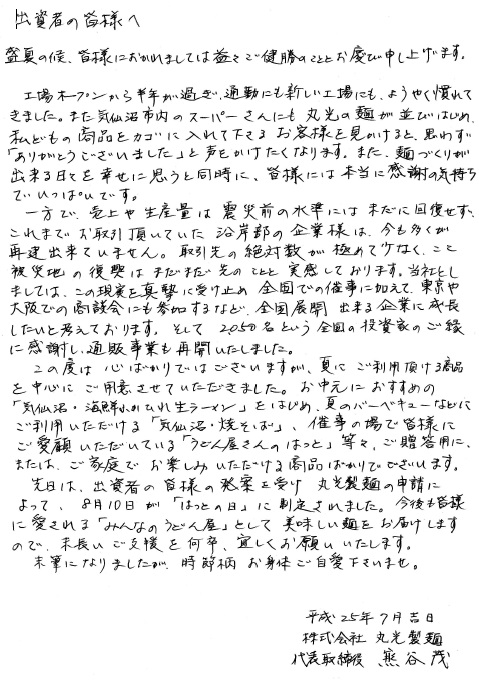 出資者の皆様へ
盛夏の候、皆様におかれましては益々ご健勝のこととお慶び申し上げます。
工場オープンから半年が過ぎ、通勤にも新しい工場にも、ようやく慣れて
きました。また気仙沼市内のスーパーさんにも丸光の麺が並びはじめ、
私どもの商品をカゴに入れて下さるお客様を見かけると、思わず
「ありがとうございました」と声をかけたくなります。また、麺づくりが
出来る日々を幸せに思うと同時に、皆様には本当に感謝の気持ち
でいっぱいです。
一方で、売上や生産量は震災前の水準にはまだに回復せず、
これまでお取引頂いていた沿岸部の企業様は、今も多くが
再建出来ていません。取引先の絶対数が極めて少なく、ここ
被災地の復興はまだまだ先のことと実感しております。当社とし
ましては、この現実を真摯に受け止め全国での催事に加えて、東京や
大阪での商談会にも参加するなど、全国展開出来る企業に成長
したいと考えております。そして2050名という全国の投資家のご縁
に感謝し、通販事業も再開いたしました。
この度は心ばかりではございますが、夏にご利用頂ける商品
を中心にご用意させていただきました。お中元におすすめの
「気仙沼・海鮮ふかひれ生ラーメン」をはじめ、夏のバーベキューなどに
ご利用いただける「気仙沼・焼そば」、催事の場で皆様に
ご愛顧いただいている「うどん屋さんのはっと」等々、ご贈答用に、
または、ご家庭でお楽しみいただける商品ばかりでございます。
先日は、出資者の皆様の発案を受け丸光製麺の申請に
よって、8月10日が「はっとの日」に制定されました。今後も皆様
に愛される「みんなのうどん屋」として美味しい麺をお届けします
ので、末長いご支援を何卒、宜しくお願いいたします。
末筆になりましたが、時節柄お身体ご自愛下さいませ。
平成25年7月吉日
株式会社 丸光製麺
代表取締役 熊谷茂